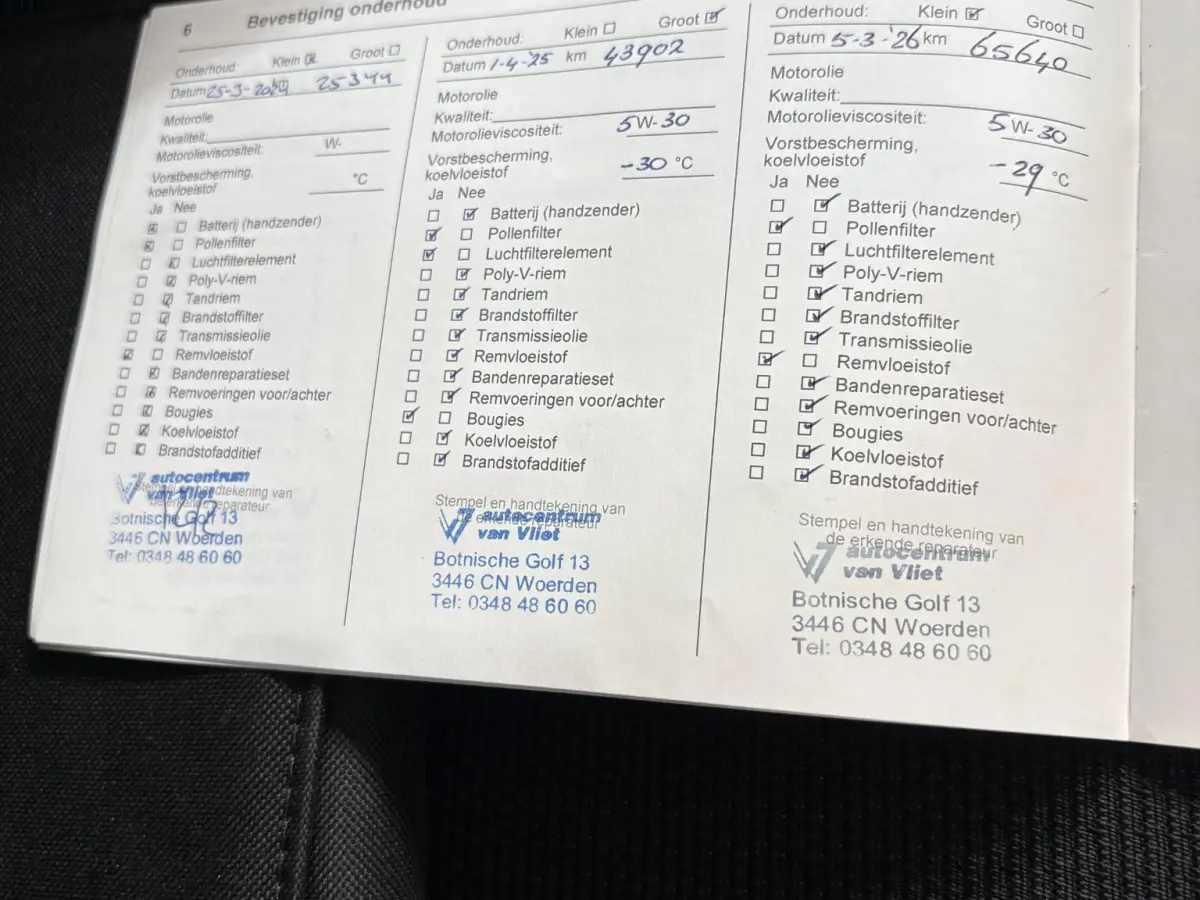 6
Bevestiging onderhoud
Onderhoud: Klein ☑ Groot ☐
Datum 25-3-2024 km 25344
Motorolie
Kwaliteit:
Motorolieviscositeit: W-
Vorstbescherming,
koelvloeistof °C
Ja Nee
☑ ☐ Batterij (handzender)
☑ ☐ Pollenfilter
☐ ☑ Luchtfilterelement
☐ ☑ Poly-V-riem
☐ ☑ Tandriem
☐ ☑ Brandstoffilter
☐ ☑ Transmissieolie
☑ ☐ Remvloeistof
☐ ☑ Bandenreparatieset
☐ ☑ Remvoeringen voor/achter
☐ ☑ Bougies
☐ ☑ Koelvloeistof
☐ ☑ Brandstofadditief
Stempel en handtekening van
de erkende reparateur
autocentrum
van Vliet
Botnische Golf 13
3446 CN Woerden
Tel: 0348 48 60 60
Onderhoud: Klein ☐ Groot ☑
Datum 1-4-'25 km 43902
Motorolie
Kwaliteit:
Motorolieviscositeit: 5W-30
Vorstbescherming,
koelvloeistof -30 °C
Ja Nee
☐ ☑ Batterij (handzender)
☑ ☐ Pollenfilter
☑ ☐ Luchtfilterelement
☐ ☑ Poly-V-riem
☐ ☑ Tandriem
☐ ☑ Brandstoffilter
☐ ☑ Transmissieolie
☐ ☑ Remvloeistof
☐ ☑ Bandenreparatieset
☐ ☑ Remvoeringen voor/achter
☑ ☐ Bougies
☐ ☑ Koelvloeistof
☐ ☑ Brandstofadditief
Stempel en handtekening van
de erkende reparateur
autocentrum
van Vliet
Botnische Golf 13
3446 CN Woerden
Tel: 0348 48 60 60
Onderhoud: Klein ☑ Groot ☐
Datum 5-3-'26 km 65640
Motorolie
Kwaliteit:
Motorolieviscositeit: 5W-30
Vorstbescherming,
koelvloeistof -29 °C
Ja Nee
☐ ☑ Batterij (handzender)
☑ ☐ Pollenfilter
☐ ☑ Luchtfilterelement
☐ ☑ Poly-V-riem
☐ ☑ Tandriem
☐ ☑ Brandstoffilter
☐ ☑ Transmissieolie
☑ ☐ Remvloeistof
☐ ☑ Bandenreparatieset
☐ ☑ Remvoeringen voor/achter
☐ ☑ Bougies
☐ ☑ Koelvloeistof
☐ ☑ Brandstofadditief
Stempel en handtekening van
de erkende reparateur
autocentrum
van Vliet
Botnische Golf 13
3446 CN Woerden
Tel: 0348 48 60 60